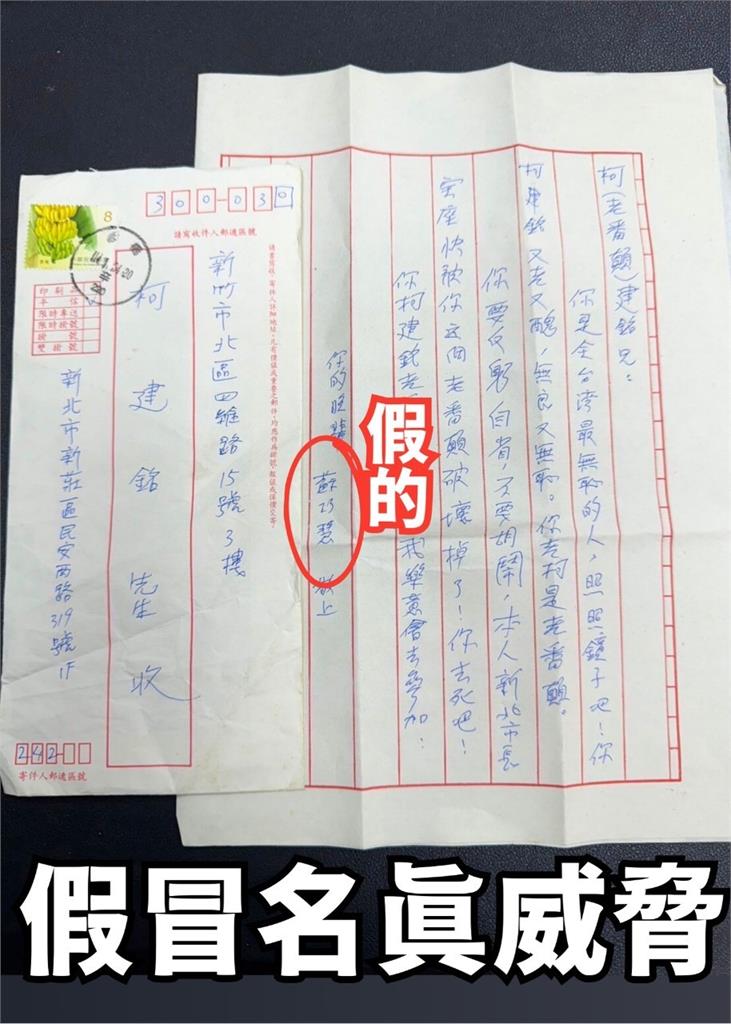 柯(老番顛)建銘兄：
你是全台灣最無恥的人，照照鏡子吧！你
柯建銘又老又醜，無良又無恥。你老柯是老番顛。
你要反躬自省，不要胡鬧，本人新北市長
寶座快被你這個老番顛破壞掉了！你去死吧！
你柯建銘老
我樂意會去參加！
你的晚輩 蘇巧慧 敬上
假的
8
300-030
請寫收件人郵遞區號
新竹市北區四維路15號3樓
柯建銘先生收
印刷
平信
限時專送
限時掛號
掛號
雙掛號
新北市新莊區民安西路319號1F
242-
寄件人郵遞區號
假冒名真威脅